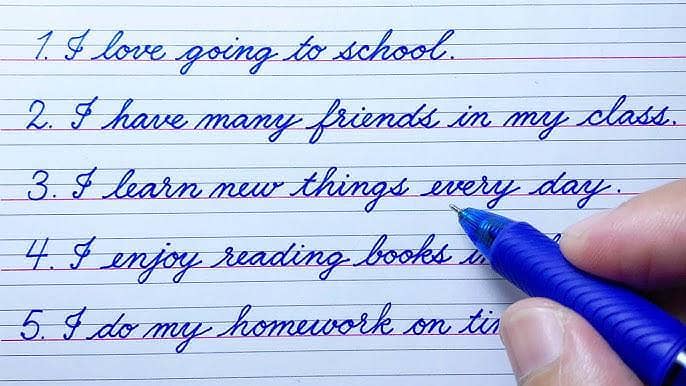 1. I love going to school.
2. I have many friends in my class.
3. I learn new things every day.
4. I enjoy reading books
5. I do my homework on